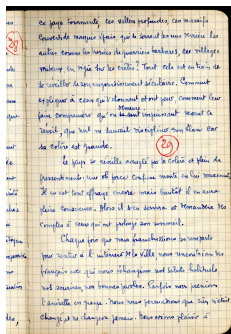 ce pays tourmenté, ces vallées profondes, ces massifs
couverts de maquis épais, qui se serrent les uns derrière les
autres comme les tours de guerriers barbares, ces villages
en train de
se réveiller de son engourdissement séculaire. Comment
expliquer à ceux qui s'étonnent et ont peur, comment leur
faire comprendre que ne seront
réveil, qui nul ne saurait son élan car
sa colère est grande.
29
Le pays se réveille aveuglé par la colère et plein de
pressentiments; une force confuse monte en lui doucement.
Il en est tout effrayé encore mais bientôt il en aura
pleine conscience. Alors il s'en servira et demandera des
comptes à ceux qui ont prolongé son sommeil.
Chaque fois que nous franchissions
pour entrer à l'intérieur de la ville nous rencontrions des
français avec qui nous échangions nos saluts habituels
nos sourires, nos bonnes paroles. Parfois nous prenions
l'anisette en groupe. Nous nous persuadions que rien n'était
changé, et ne changera jamais. Nous avions plaisir à